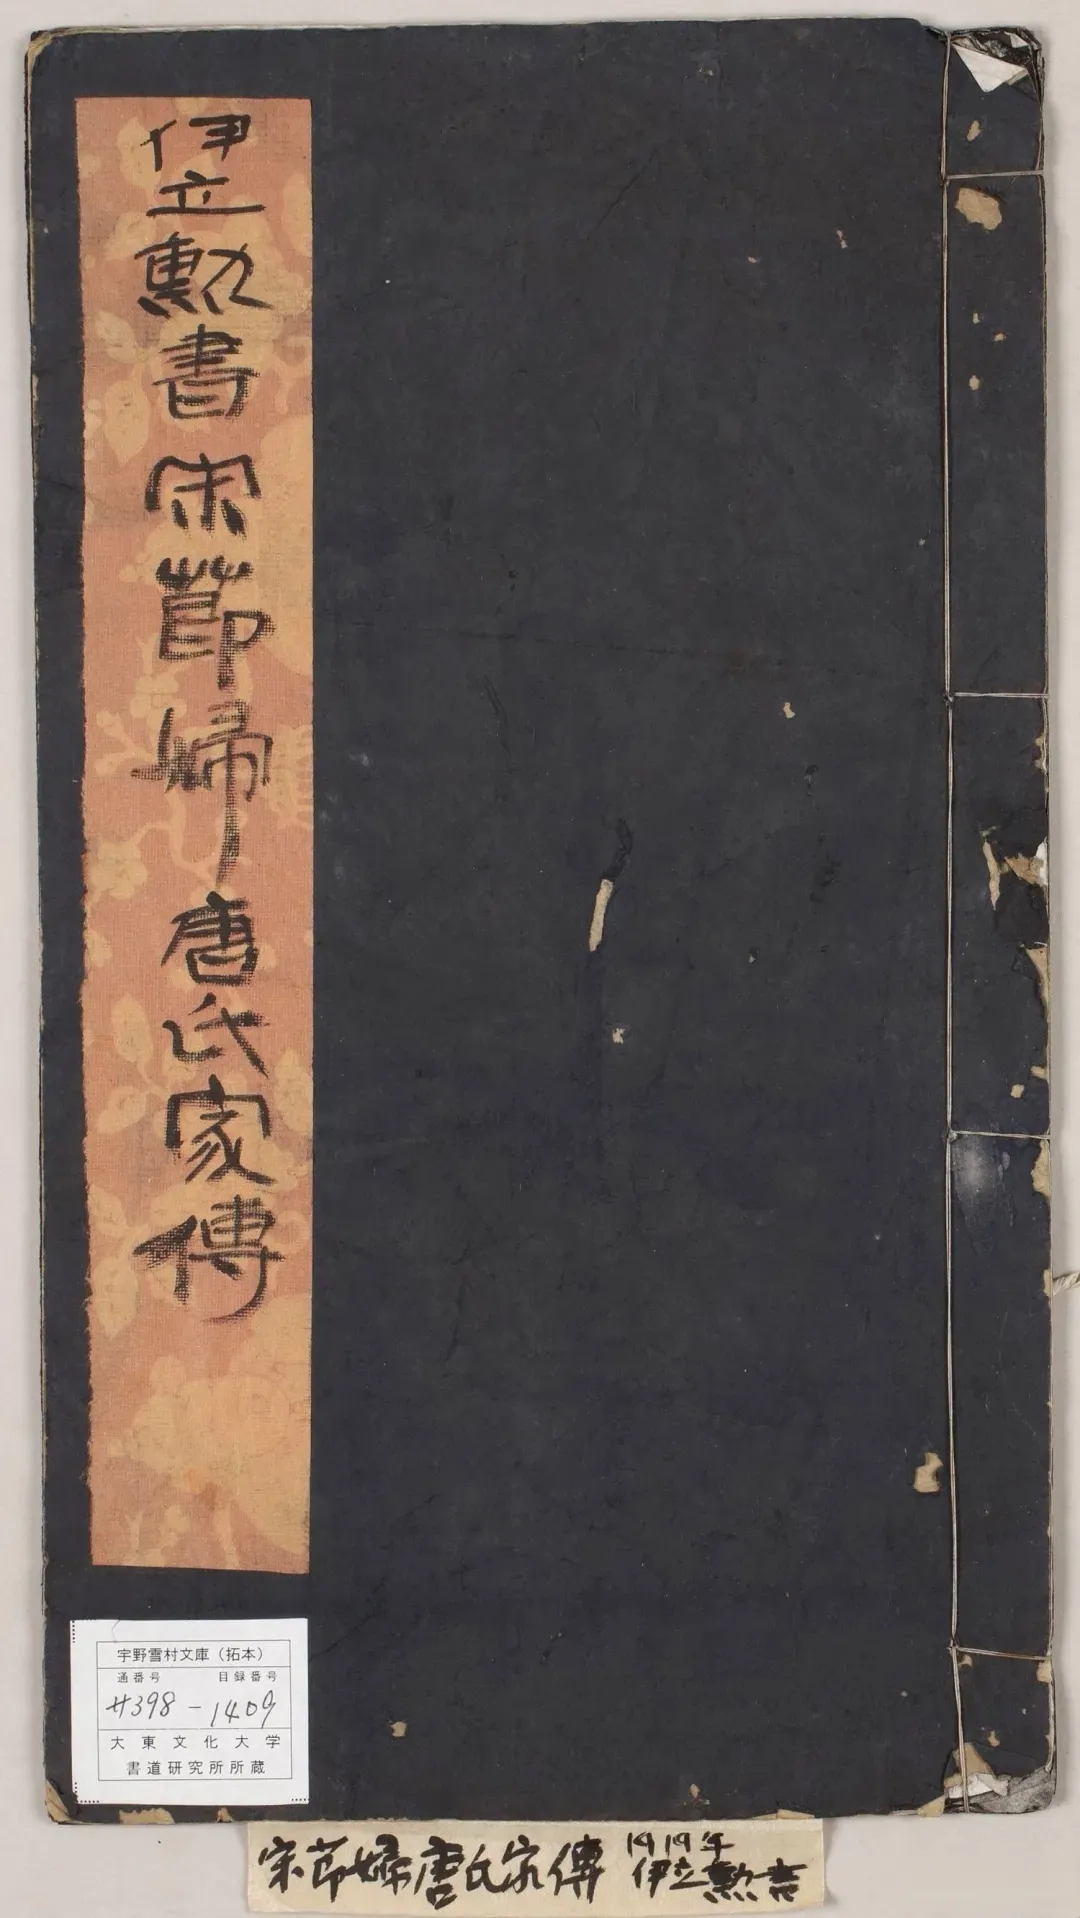 伊立勲書宋節婦唐氏家傳
宇野雪村文庫（拓本）
通番号 目録番号
廿398-1409
大東文化大学
書道研究所所蔵
宋節婦唐氏家傳 1919年
伊立勲書